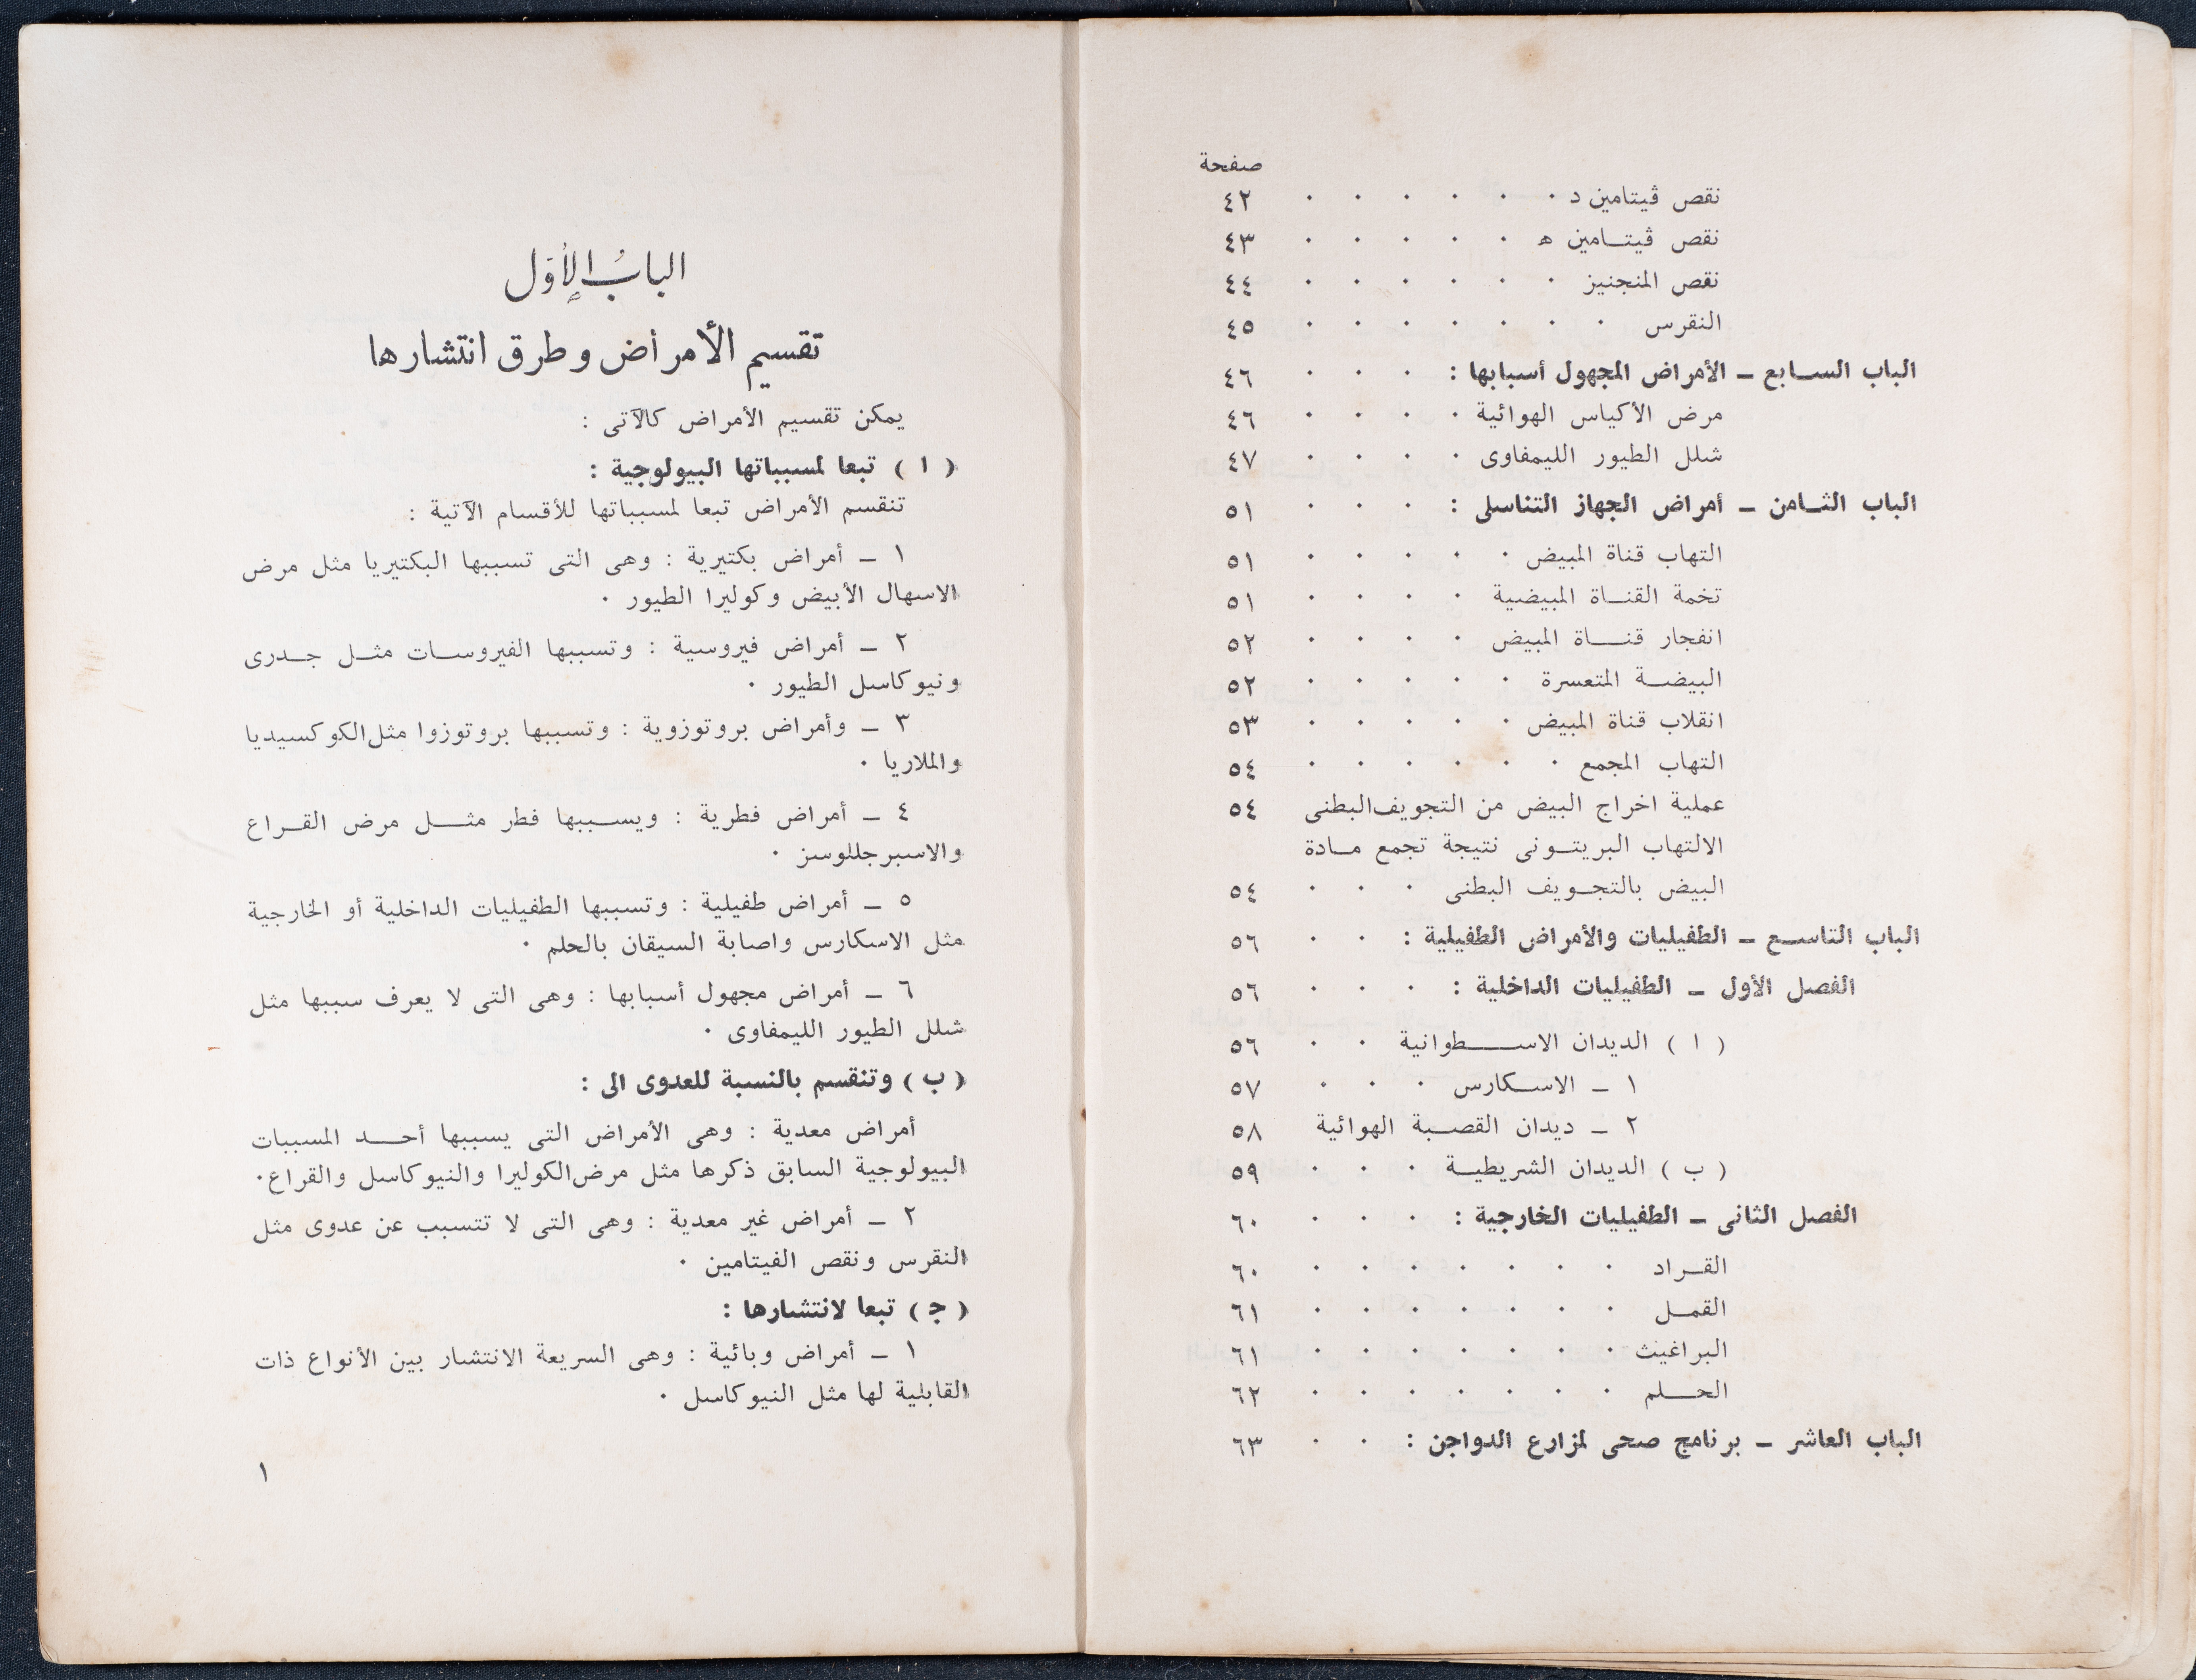 صفحة
نقص ڤيتامين د . . . . . . ٤٢
نقص ڤيتـامين ه . . . . . ٤٣
نقص المنجنيز . . . . . . ٤٤
النقرس . . . . . . . ٤٥
الباب السـابع ـ الأمراض المجهول أسبابها : . . . ٤٦
مرض الأكياس الهوائية . . . . ٤٦
شلل الطيور الليمفاوى . . . . ٤٧
الباب الثـامن ـ أمراض الجهاز التناسلى : . . . ٥١
التهاب قناة المبيض . . . . . ٥١
تخمة القنـاة المبيضية . . . . ٥١
انفجار قنـــاة المبيض . . . . ٥٢
البيضـة المتعسرة . . . . . ٥٢
انقلاب قناة المبيض . . . . . ٥٣
التهاب المجمع . . . . . . ٥٤
عملية اخراج البيض من التجويف البطنى ٥٤
الالتهاب البريتـونى نتيجة تجمع مـادة
البيض بالتجـويف البطنى . . . ٥٤
الباب التاسـع ـ الطفيليات والأمراض الطفيلية : . . ٥٦
الفصل الأول ـ الطفيليات الداخلية : . . . ٥٦
( ا ) الديدان الاســـطوانية . . ٥٦
١ ـ الاسـكارس . . . ٥٧
٢ ـ ديدان القصـبة الهوائية ٥٨
( ب ) الديدان الشريطيـة . . . ٥٩
الفصل الثانى ـ الطفيليات الخارجية : . . . ٦٠
القـراد . . . . . . . ٦٠
القمـل . . . . . . . ٦١
البراغيث . . . . . . . ٦١
الحـــلم . . . . . . . ٦٢
الباب العاشر ـ برنامج صحى لمزارع الدواجن : . . ٦٣
البابُ الأوَل
تقسيم الأمراض وطرق انتشارها
يمكن تقسيم الأمراض كالآتى :
( ا ) تبعا لمسبباتها البيولوجية :
تنقسم الأمراض تبعا لمسبباتها للأقسام الآتية :
١ ـ أمراض بكتيرية : وهى التى تسببها البكتيريا مثل مرض
الاسهال الأبيض وكوليرا الطيور .
٢ ـ أمراض فيروسية : وتسببها الفيروسـات مثـل جـدرى
ونيوكاسل الطيور .
٣ ـ وأمراض بروتوزوية : وتسببها بروتوزوا مثل الكوكسيديا
والملاريا .
٤ ـ أمراض فطرية : ويسـببها فطر مثـــل مرض القـراع
والاسبرجللوسز .
٥ ـ أمراض طفيلية : وتسببها الطفيليات الداخلية أو الخارجية
مثل الاسكارس واصابة السيقان بالحلم .
٦ ـ أمراض مجهول أسبابها : وهى التى لا يعرف سببها مثل
شلل الطيور الليمفاوى .
( ب ) وتنقسم بالنسبة للعدوى الى :
أمراض معدية : وهى الأمراض التى يسببها أحـــد المسببات
البيولوجية السابق ذكرها مثل مرض الكوليرا والنيوكاسل والقراع .
٢ ـ أمراض غير معدية : وهى التى لا تتسبب عن عدوى مثل
النقرس ونقص الفيتامين .
( ج ) تبعا لانتشارها :
١ ـ أمراض وبائية : وهى السريعة الانتشار بين الأنواع ذات
القابلية لها مثل النيوكاسل .
١